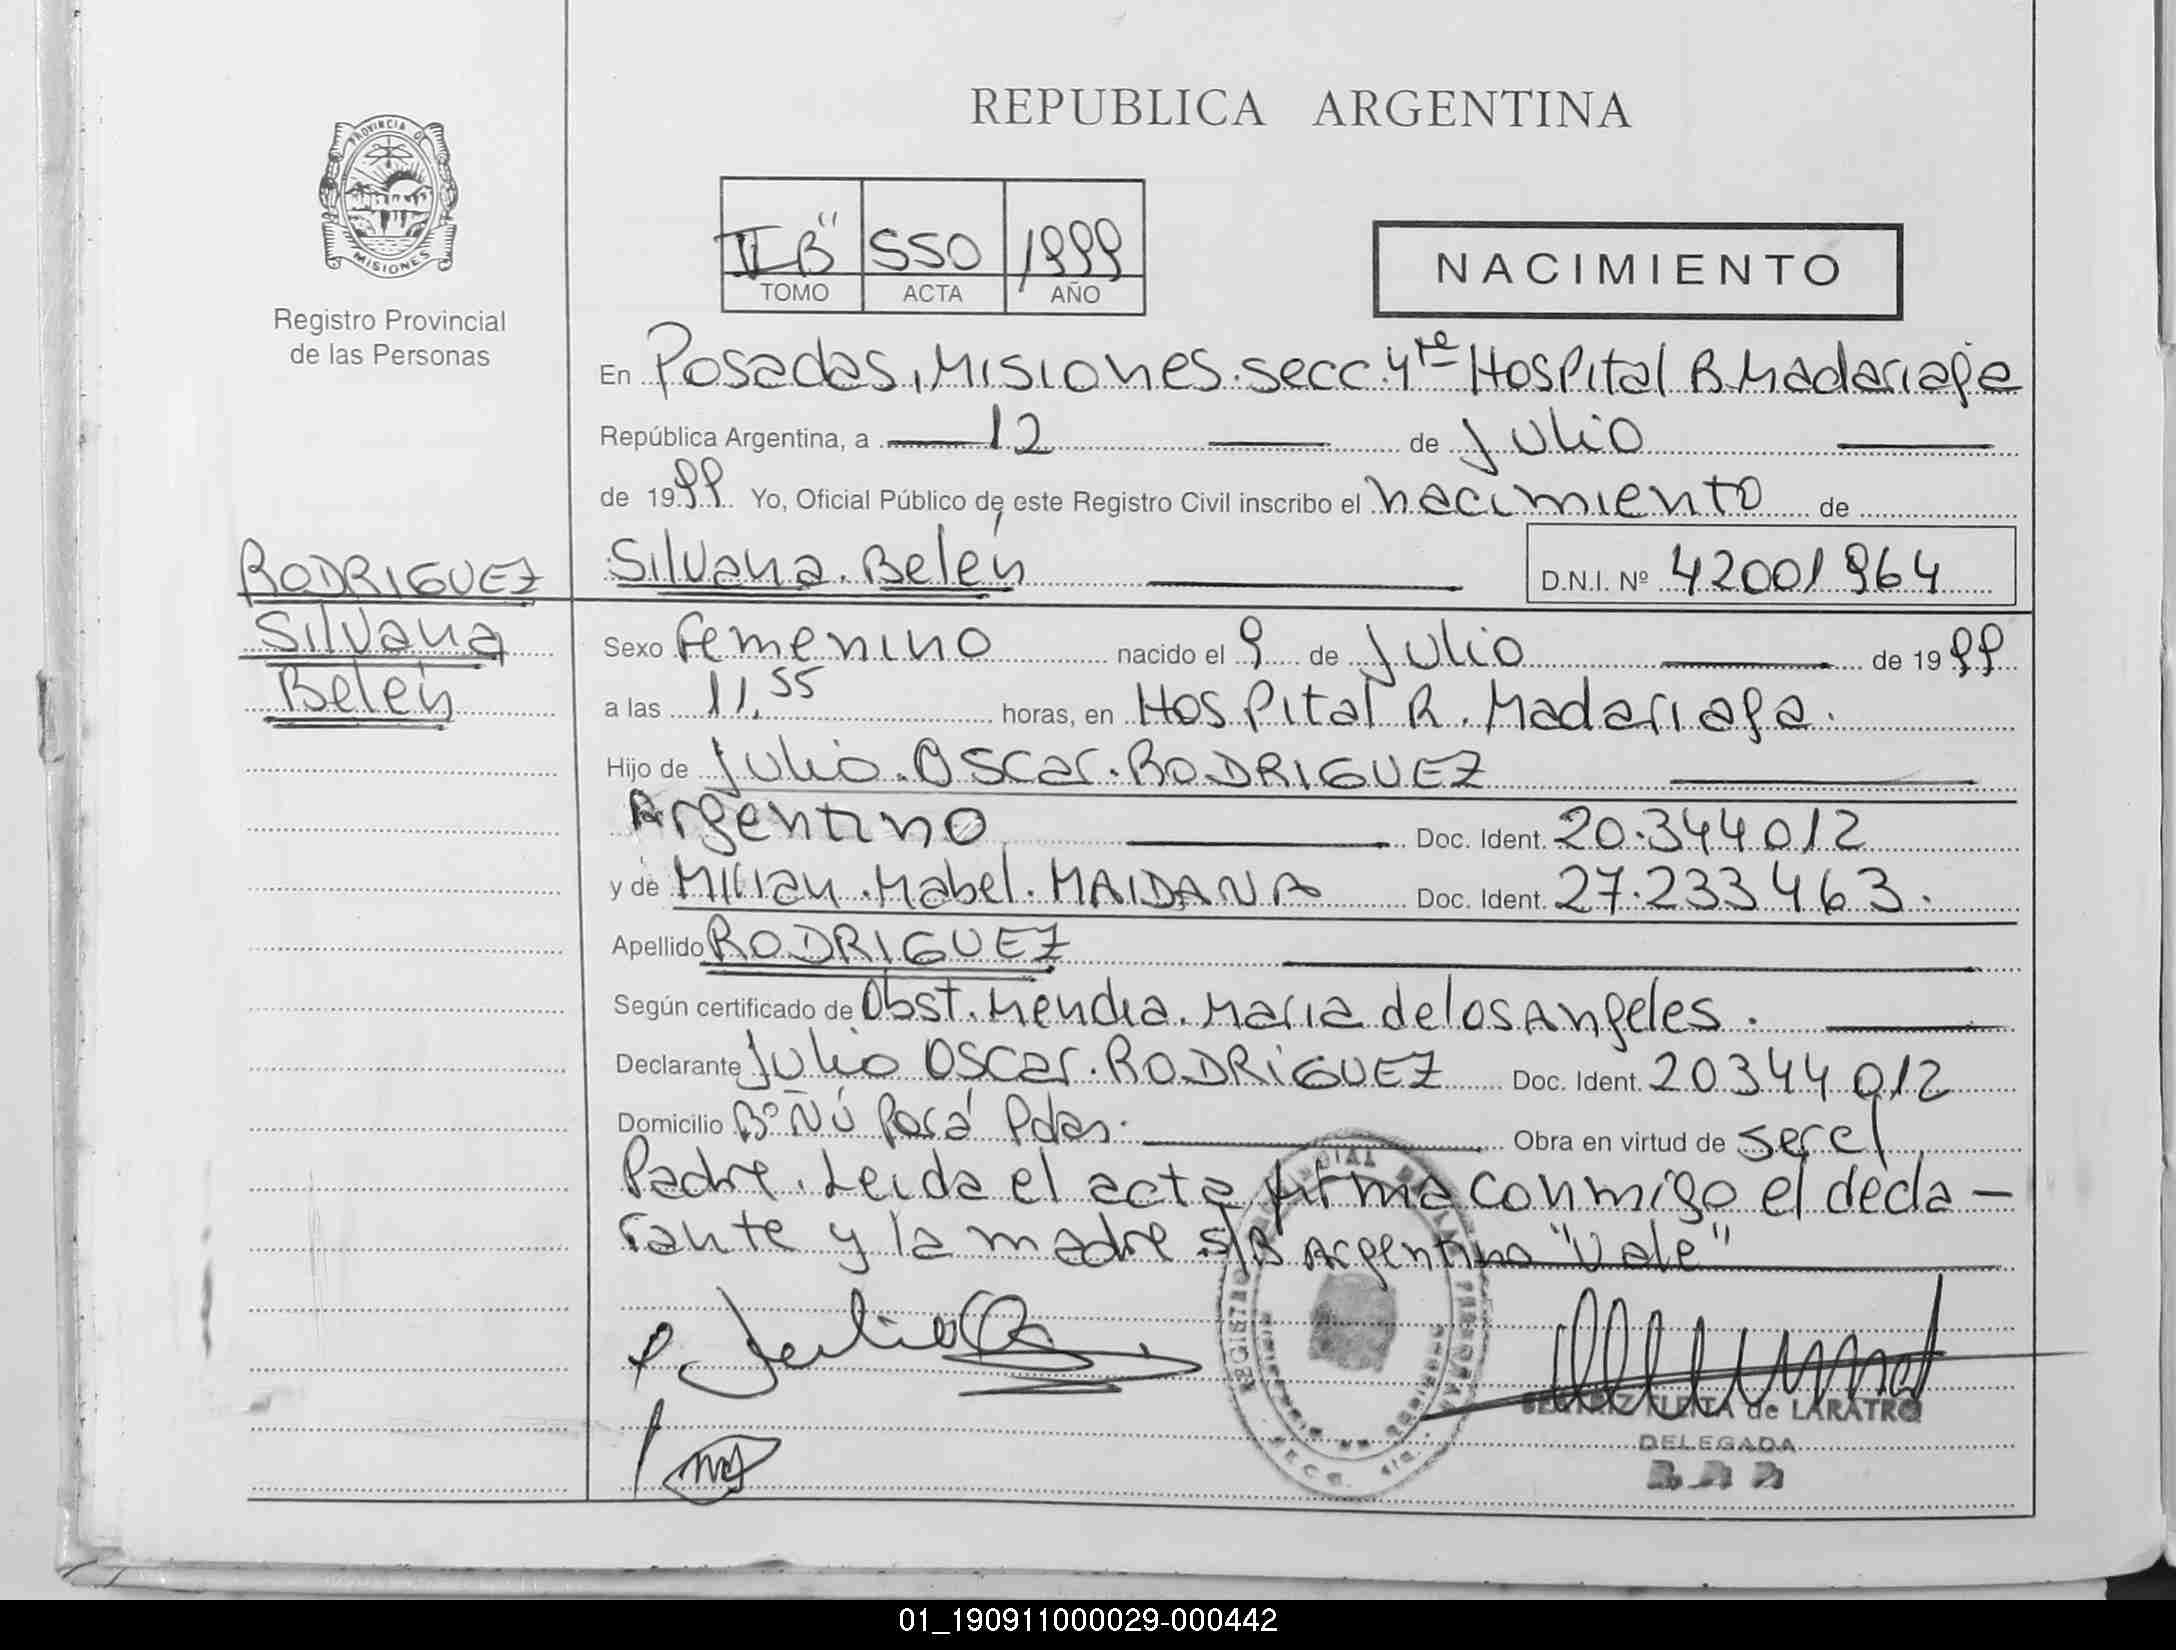 REPUBLICA ARGENTINA
PROVINCIA DE
MISIONES
Registro Provincial
de las Personas
II "B" 550 1999
TOMO ACTA AÑO
NACIMIENTO
En Posadas, Misiones. secc. 4ta Hospital R. Madariaga
República Argentina, a 12 de Julio
de 1999 Yo, Oficial Público de este Registro Civil inscribo el nacimiento de
RODRIGUEZ
Silvana
Belén
Silvana. Belén D.N.I. Nº 42001964
Sexo femenino nacido el 9 de Julio de 1999
a las 11,55 horas, en Hospital R. Madariaga.
Hijo de Julio. Oscar. RODRIGUEZ
Argentino Doc. Ident. 20.344012
y de Mirian. Mabel. MAIDANA Doc. Ident. 27.233463.
Apellido RODRIGUEZ
Según certificado de Obst. Mendia. Maria de los Angeles.
Declarante Julio Oscar. RODRIGUEZ Doc. Ident. 20344012
Domicilio Bº Ñú Porá Pdas. Obra en virtud de ser el
Padre. Leida el acta firma conmigo el decla-
rante y la madre s/R Argentino "Vale"
BEATRIZ FLEITA de LARATRO
DELEGADA
01_190911000029-000442